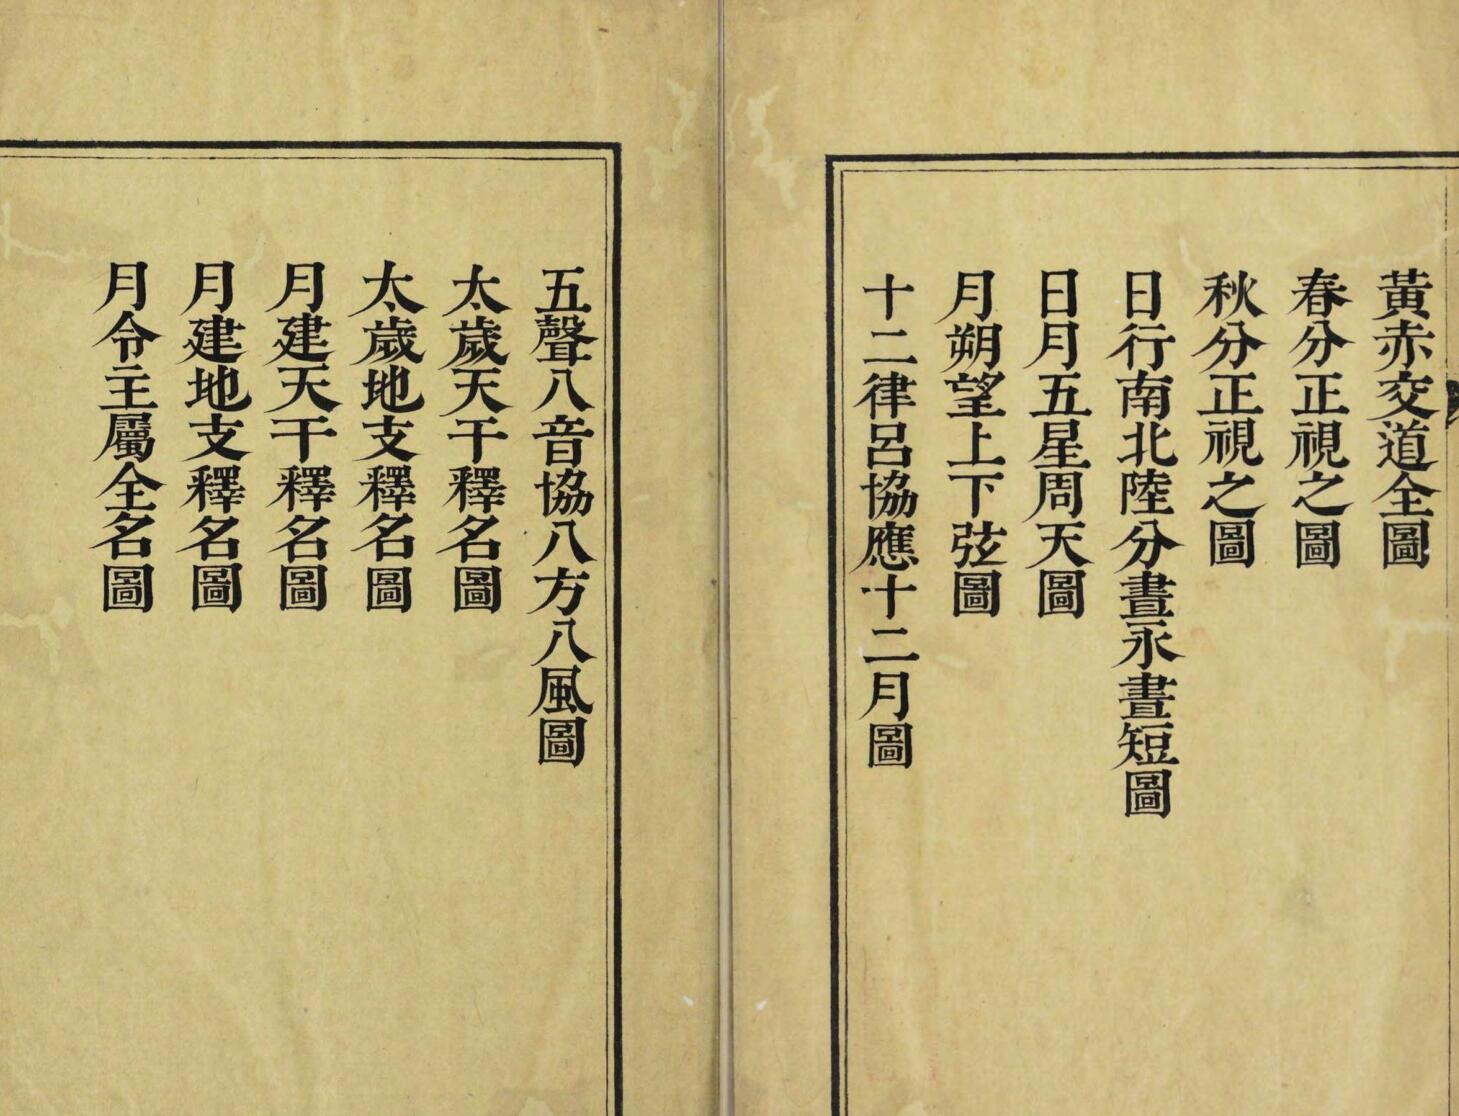 黃赤交道全圖
春分正視之圖
秋分正視之圖
日行南北陸分晝永晝短圖
日月五星周天圖
月朔望上下弦圖
十二律呂協應十二月圖
五聲八音協八方八風圖
太歲天干釋名圖
太歲地支釋名圖
月建天干釋名圖
月建地支釋名圖
月令主屬全名圖